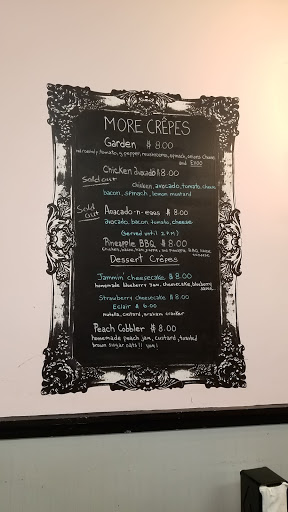 MORE CRÊPES
Garden $ 8.00
tomato, g. pepper, mushrooms, spinach, onions cheese
and EGGS
Chicken avocado $8.00
Sold out
Chicken, avocado, tomato, cheese,
bacon, spinach, lemon mustard
Sold
Out
Avacado-n-eggs $ 8.00
avocado, bacon, tomato, cheese
(served until 2 PM)
Pineapple BBQ $ 8.00
Chicken, bacon, pineapple BBQ sauce
cheese
Dessert Crêpes
Jammin' cheesecake $ 8.00
homemade blueberry jam, cheesecake, blueberry
sauce
Strawberry cheesecake $ 8.00
Eclair $ 6.00
nutella, custard, graham cracker
Peach Cobbler $ 8.00
homemade peach jam, custard, toasted
brown sugar oats!!